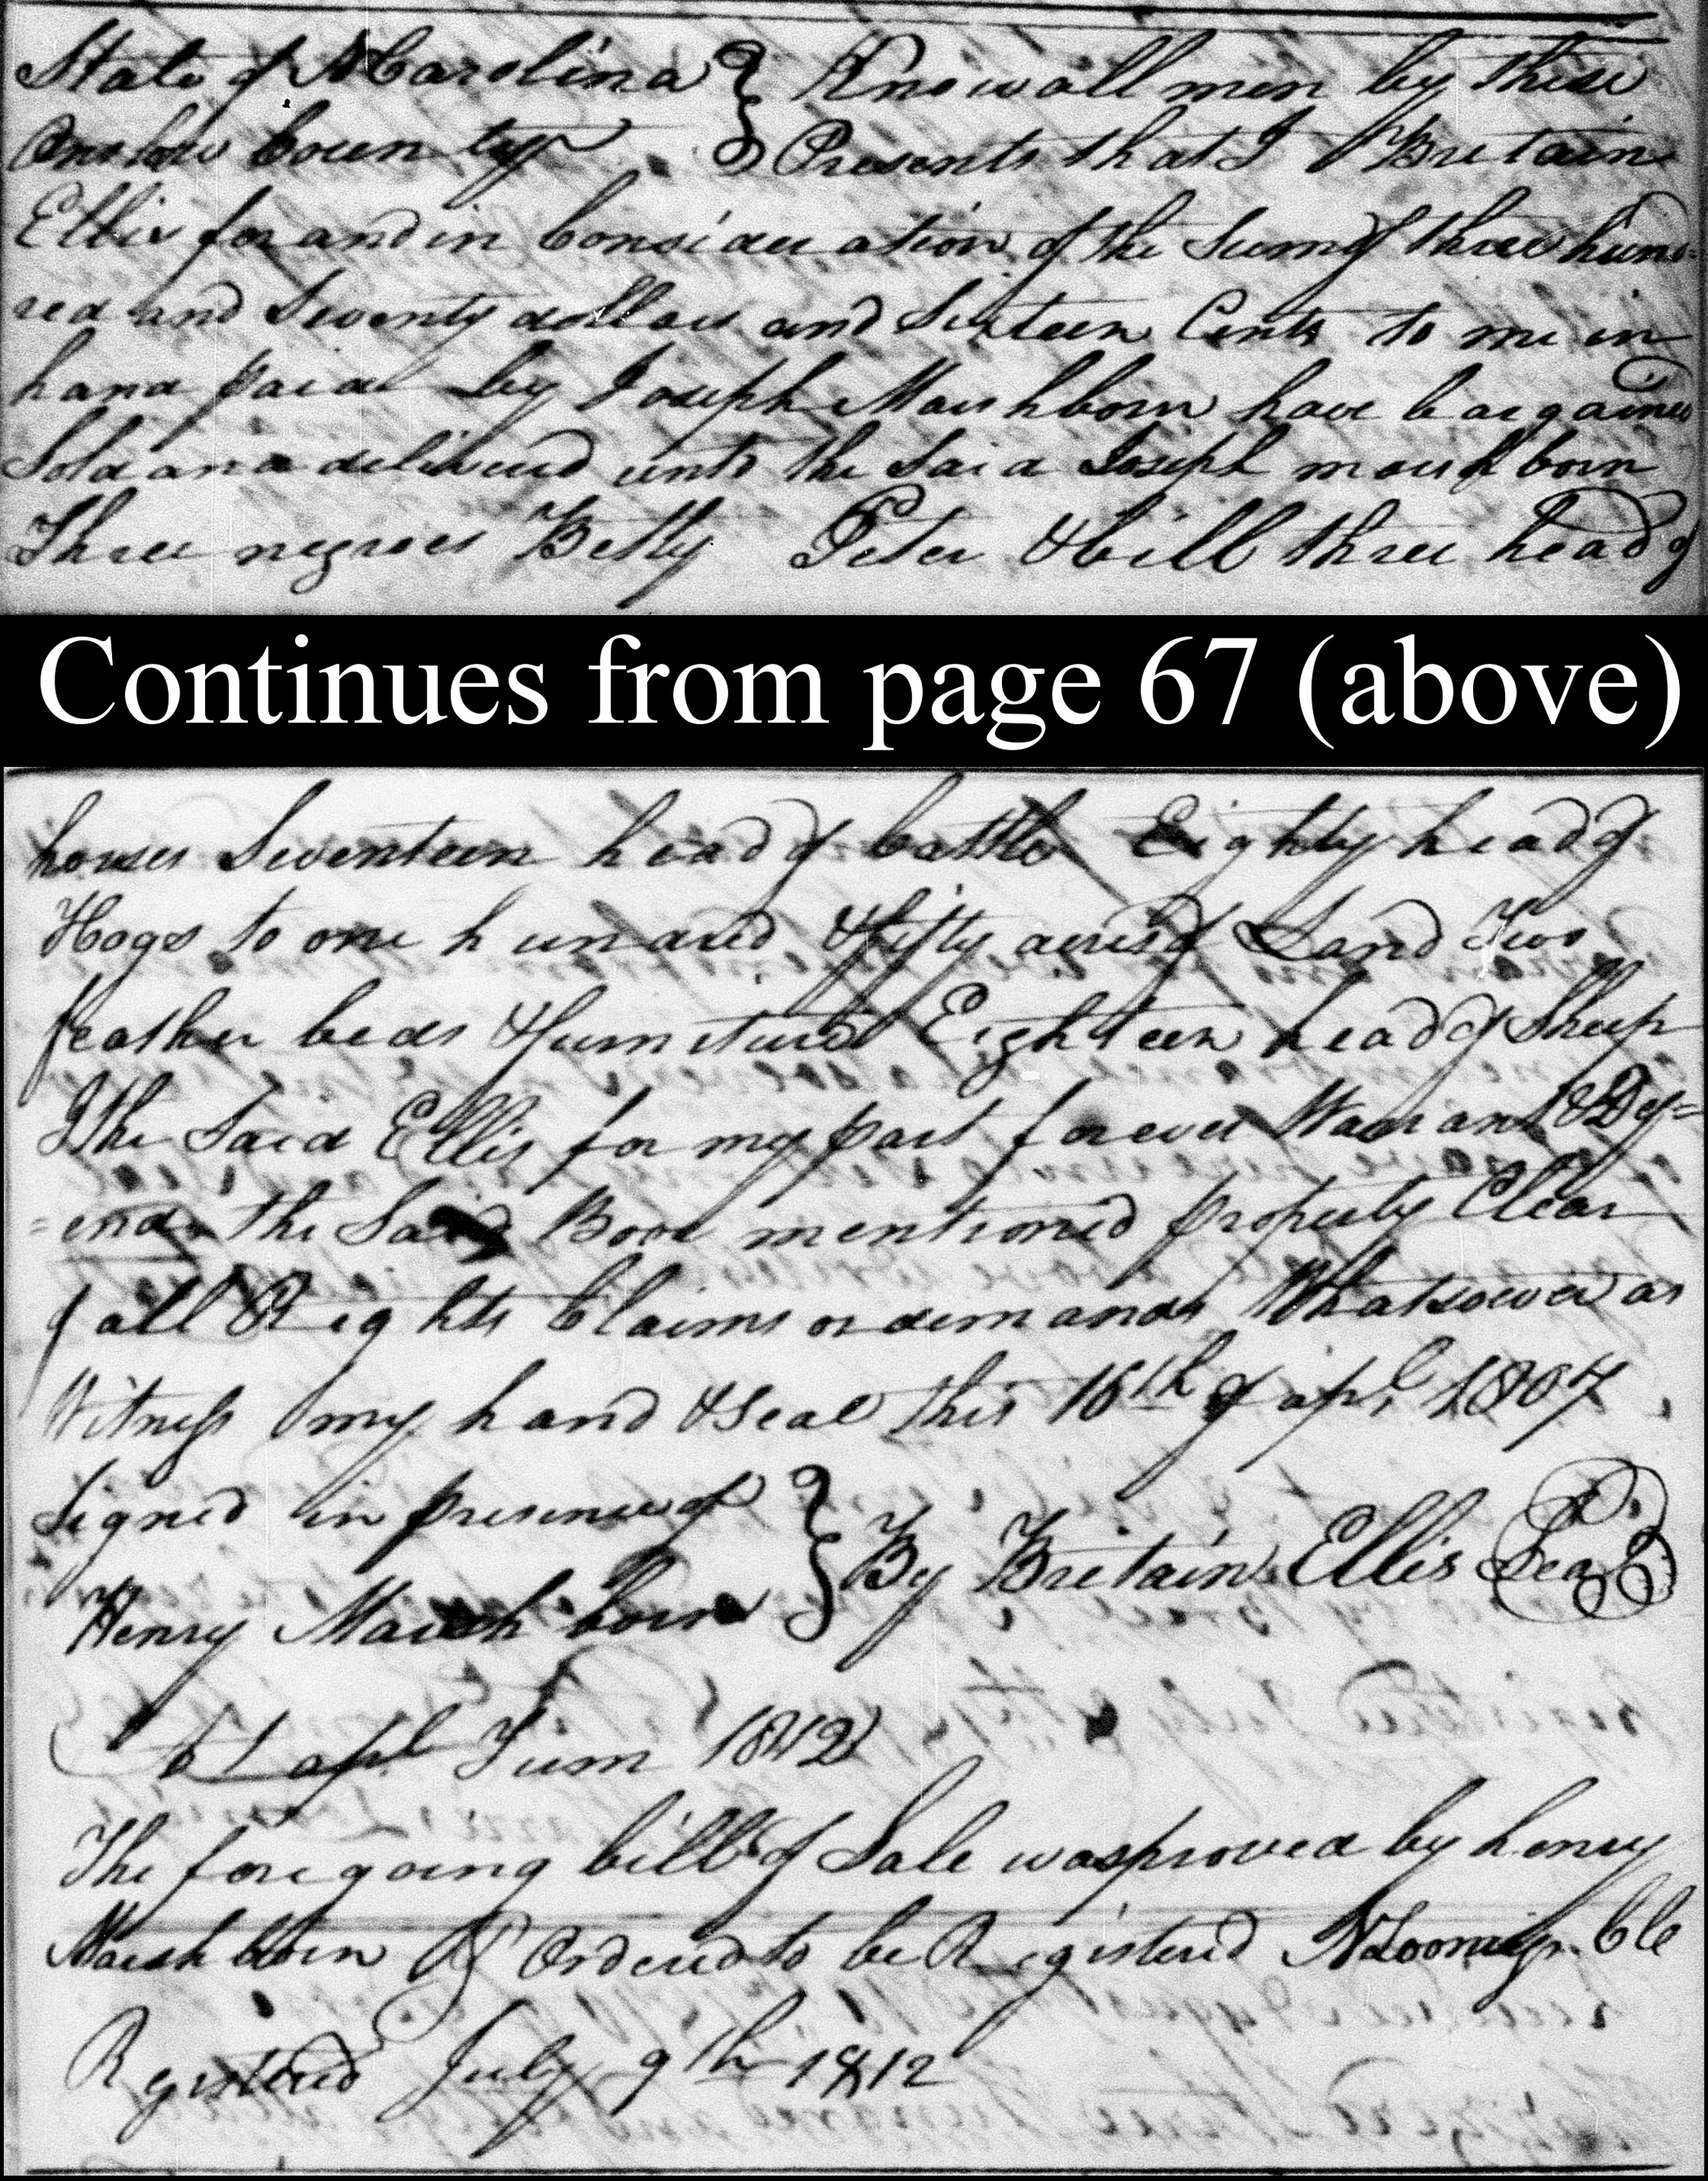 State of N Carolina } Know all men by these
Onslow County } Presents that I Britain
Ellis for and in Consideration of the Sum of three hund=
red and Seventy dollars and Sixteen Cents to me in
hand paid by Joseph Marshborn have bargained
Sold and delivered unto the Said Joseph marshborn
Three negroes Betty Peter & bill three head of
Continues from page 67 (above)
horses Seventeen head of Cattle Eighty head of
Hogs to one hundred & fifty acres of Land Two
feather beds & furniture Eighteen head of Sheep
I the Said Ellis for my part forever Warrant & Def=
=end the Said Bove mentioned property Clear
of all Rights Claims or demands Whatsoever as
Witness my hand & Seal this 16th of apl 1807
Signed in presence of } By Britain Ellis Seal
Henry Marshborn
apl Turm 1812
The foregoing bill of Sale was proved by henry
Marshborn & Ordered to be Registered N Loomis Cle
Registered July 9th 1812